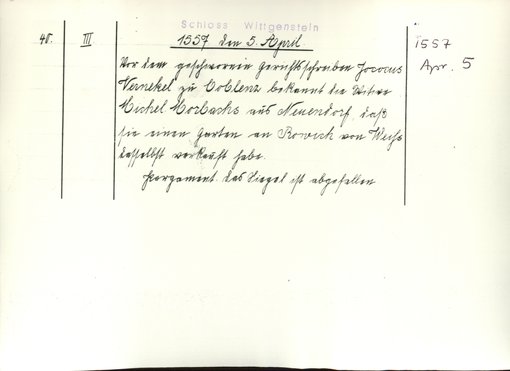 Schloss Wittgenstein
45. III 1557 den 5. April. 1557
Apr. 5
Vor dem geschworenen Gerichtsschreiben
zu Coblenz bekennt die Witwe
Michel Morbachs aus Neuendorf, daß
sie einen Garten an von
daselbst verkauft habe.
Pergament. das Siegel ist abgefallen